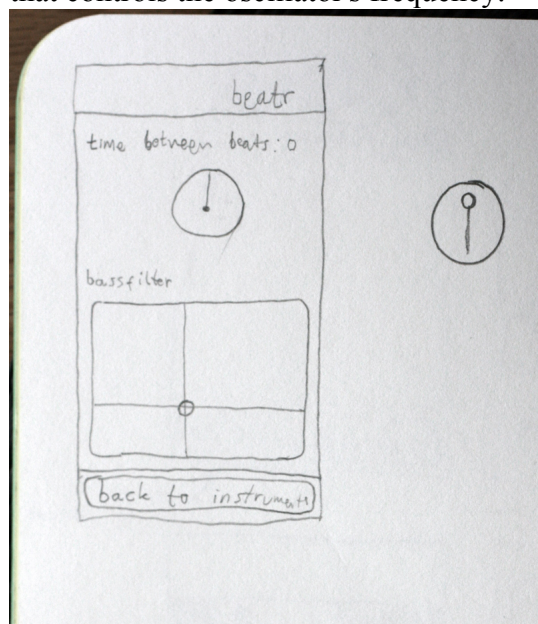 that controls the oscillator's frequency.
beatr
time between beats: 0
bassfilter
back to instruments